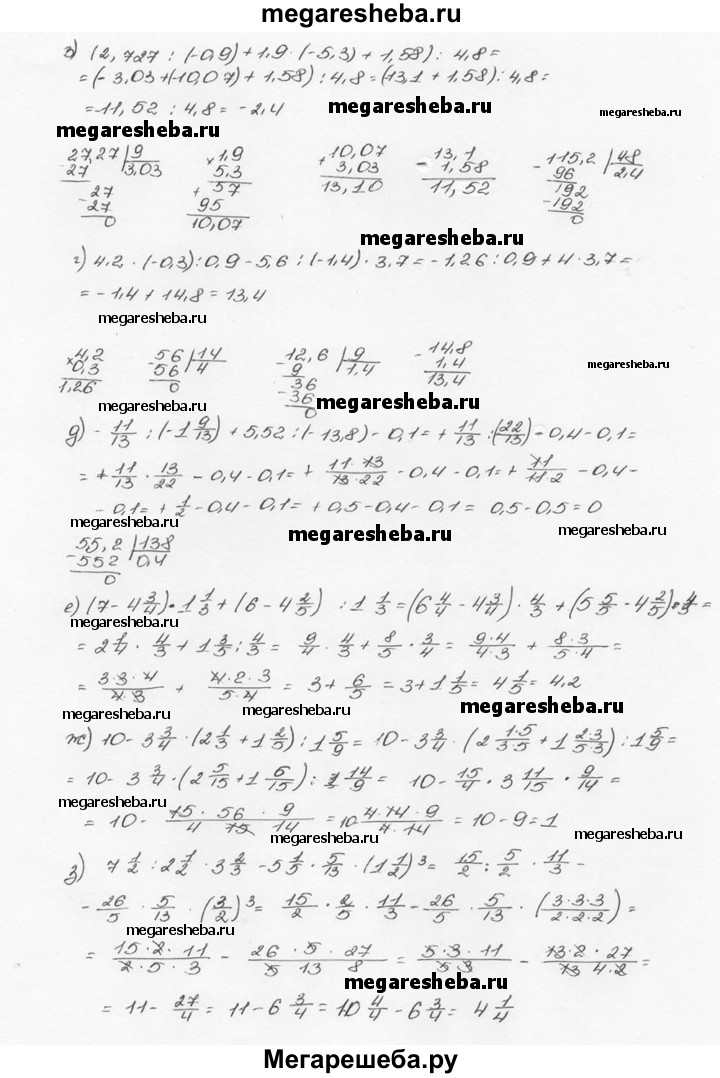 megaresheba.ru
в) (2,727 : (-0,9) + 1,9 · (-5,3) + 1,58) : 4,8 =
= (-3,03 + (-10,07) + 1,58) : 4,8 = (13,1 + 1,58) : 4,8 =
= -11,52 : 4,8 = -2,4
megaresheba.ru
megaresheba.ru
megaresheba.ru
27,27 | 9 × 1,9 + 10,07 - 13,1 - 115,2 | 48
27 3,03 5,3 3,03 1,58 96 2,4
27 + 57 13,10 11,52 192
- 27 95 - 192
0 10,07 0
megaresheba.ru
г) 4,2 · (-0,3) : 0,9 - 5,6 : (-1,4) · 3,7 = -1,26 : 0,9 + 4 · 3,7 =
= -1,4 + 14,8 = 13,4
megaresheba.ru
megaresheba.ru
× 4,2 - 56 | 14 - 12,6 | 9 - 14,8
0,3 56 4 9 1,4 1,4
1,26 0 36 13,4
- 36
0
megaresheba.ru
megaresheba.ru
д) - 11/13 : (-1 9/13) + 5,52 : (-13,8) - 0,1 = + 11/13 : (22/13) - 0,4 - 0,1 =
= + 11/13 · 13/22 - 0,4 - 0,1 = + 11·13/13·22 - 0,4 - 0,1 = + 11/11·2 - 0,4 -
- 0,1 = + 1/2 - 0,4 - 0,1 = + 0,5 - 0,4 - 0,1 = 0,5 - 0,5 = 0
megaresheba.ru
megaresheba.ru
megaresheba.ru
- 55,2 | 138
552 0,4
0
е) (7 - 4 3/4) · 1 1/3 + (6 - 4 2/5) : 1 1/3 = (6 4/4 - 4 3/4) · 4/3 + (5 5/5 - 4 2/5) : 4/3 =
= 2 1/4 · 4/3 + 1 3/5 : 4/3 = 9/4 · 4/3 + 8/5 · 3/4 = 9·4/4·3 + 8·3/5·4 =
= 3·3·4/4·3 + 4·2·3/5·4 = 3 + 6/5 = 3 + 1 1/5 = 4 1/5 = 4,2
megaresheba.ru
megaresheba.ru
ж) 10 - 3 3/4 · (2 1/3 + 1 2/5) : 1 5/9 = 10 - 3 3/4 · (2 1·5/3·5 + 1 2·3/5·3) : 1 5/9 =
= 10 - 3 3/4 · (2 5/15 + 1 6/15) : 14/9 = 10 - 15/4 · 3 11/15 · 9/14 =
megaresheba.ru
= 10 - 15 · 56 · 9/4 · 15 · 14 = 10 - 4·14·9/4·14 = 10 - 9 = 1
megaresheba.ru
з) 7 1/2 : 2 1/2 · 3 2/3 - 5 1/5 · 5/13 · (1 1/2)³ = 15/2 : 5/2 · 11/3 -
- 26/5 · 5/13 · (3/2)³ = 15/2 · 2/5 · 11/3 - 26/5 · 5/13 · (3·3·3/2·2·2) =
megaresheba.ru
= 15·2·11/2·5·3 - 26 · 5 · 27/5 13 8 = 5·3·11/5 3 - 13·2·27/13 4·2 =
megaresheba.ru
= 11 - 27/4 = 11 - 6 3/4 = 10 4/4 - 6 3/4 = 4 1/4
Мегарешеба.ру